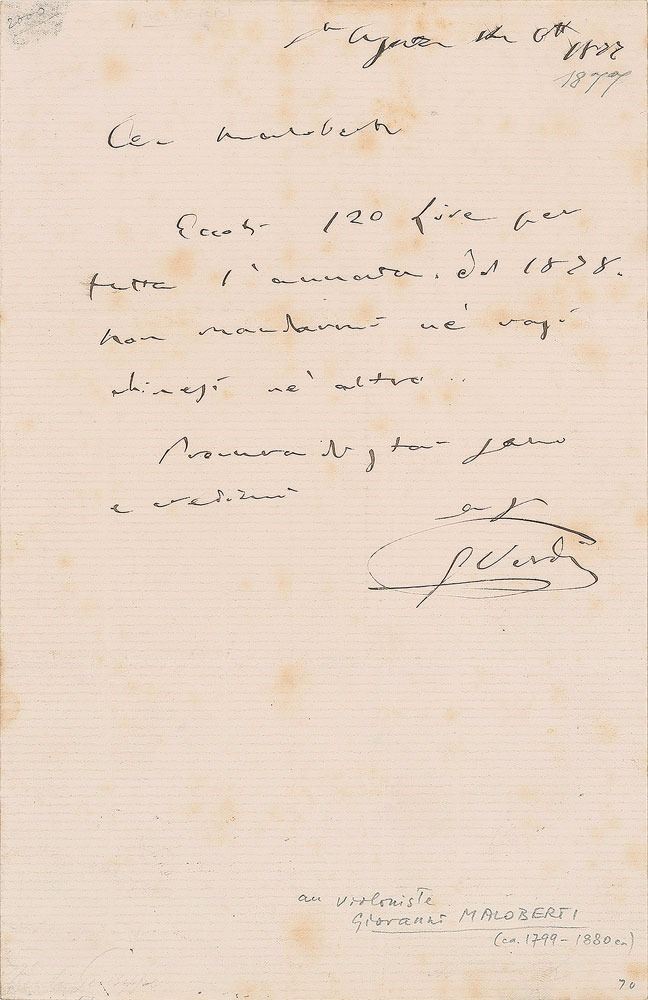 St Agata 14 Ott 1877
1877
Car Maloberti
Eccoti 120 lire per
tutta l'annata del 1878.
Non mandarmi nè vasi
chinesi nè altro..
Procura di star sano
e credimi
aff
G Verdi
au violoniste
Giovanni MALOBERTI
(ca. 1799 - 1880 ca)
70